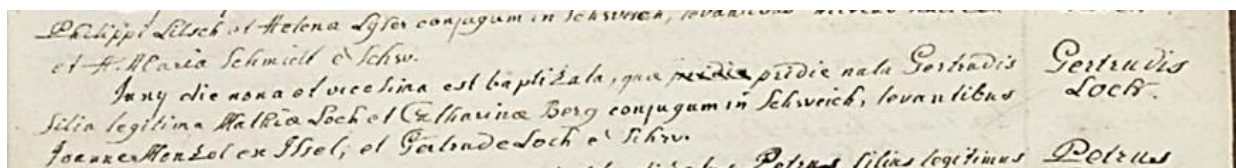 Philippi Litsch et Helena Lyser conjugum in Schweich, levantibus
et A. Maria Schmidt è Schw.
Juny die nona et vicesima est baptizata, quae pridie pridie nata Gertrudis
filia legitima Mathiae Loch et Catharinae Berg conjugum in Schweich, levantibus
Joanne Menzel ex Issel, et Gertrude Loch è Schw.
Petrus filius legitimus
Gertrudis
Loch.
Petrus